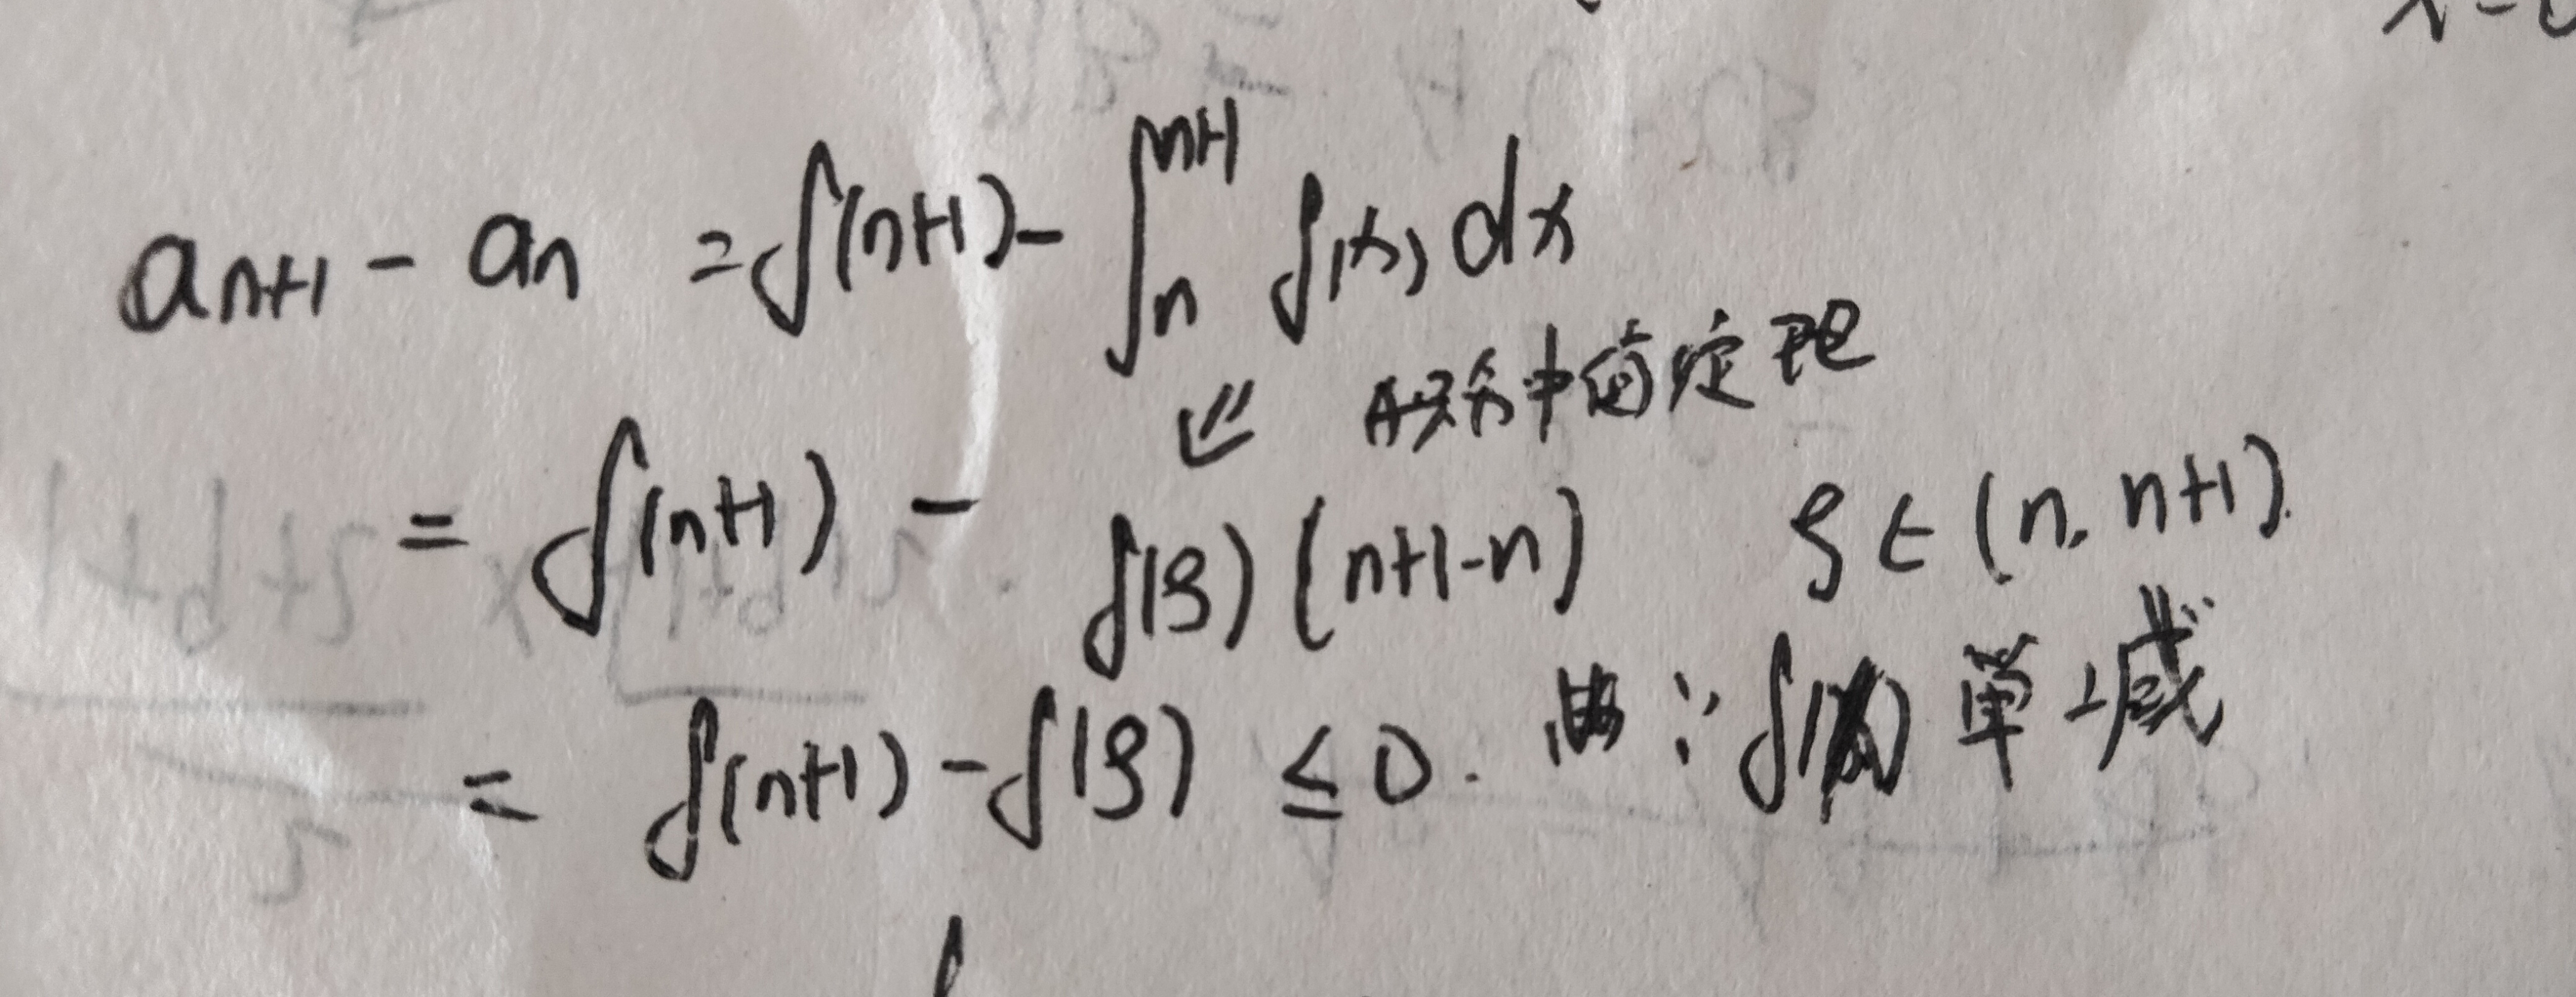 a_{n+1} - a_n = f(n+1) - ∫_n^{n+1} f(x) dx
⇙ 积分中值定理
= f(n+1) - f(ξ)(n+1-n) ξ∈(n, n+1).
= f(n+1) - f(ξ) ≤ 0. ∵ f(x) 单减